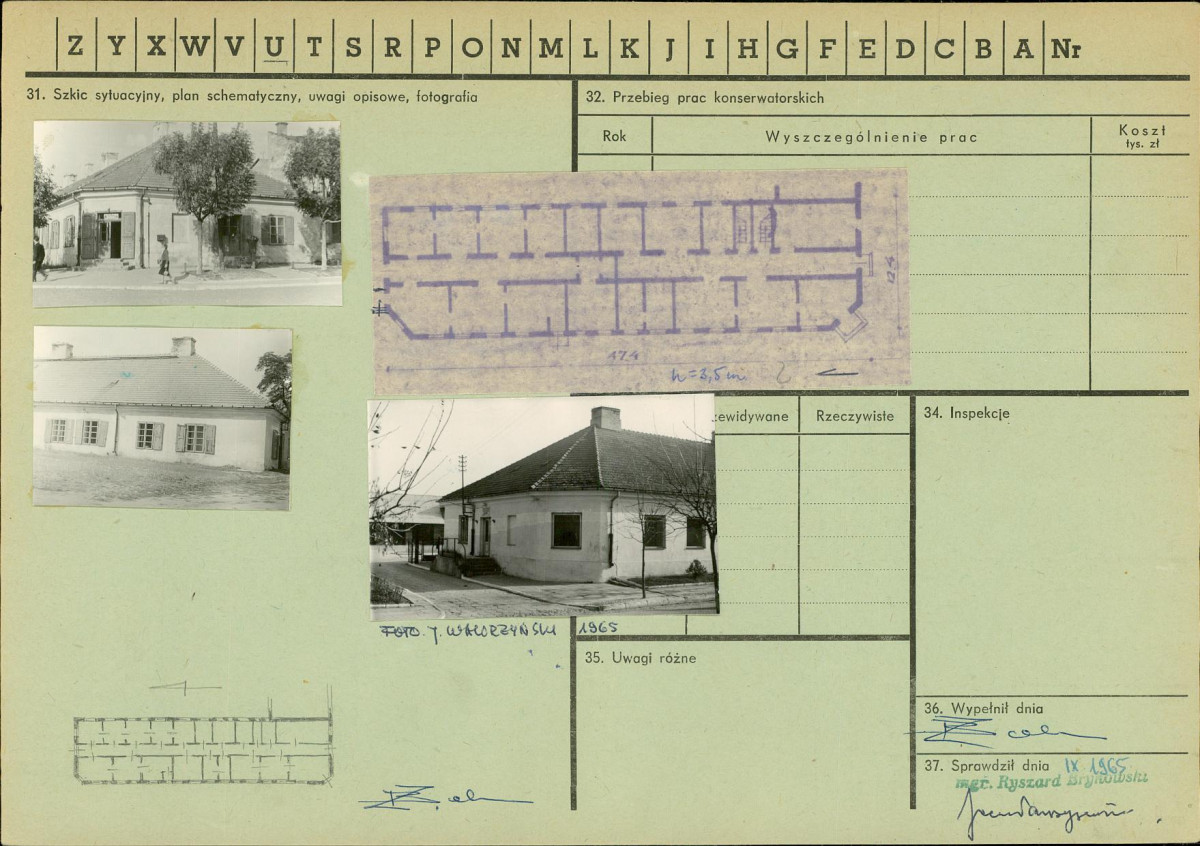 Z Y X W V U T S R P O N M L K J I H G F E D C B A Nr
31. Szkic sytuacyjny, plan schematyczny, uwagi opisowe, fotografia
32. Przebieg prac konserwatorskich
Rok
Wyszczególnienie prac
Koszt
tys. zł
12 4
47 4
h = 3,5 m
ewidywane
Rzeczywiste
34. Inspekcje
FOTO. J. 1965
35. Uwagi różne
36. Wypełnił dnia
37. Sprawdził dnia IX 1965
mgr. Ryszard Brykowski